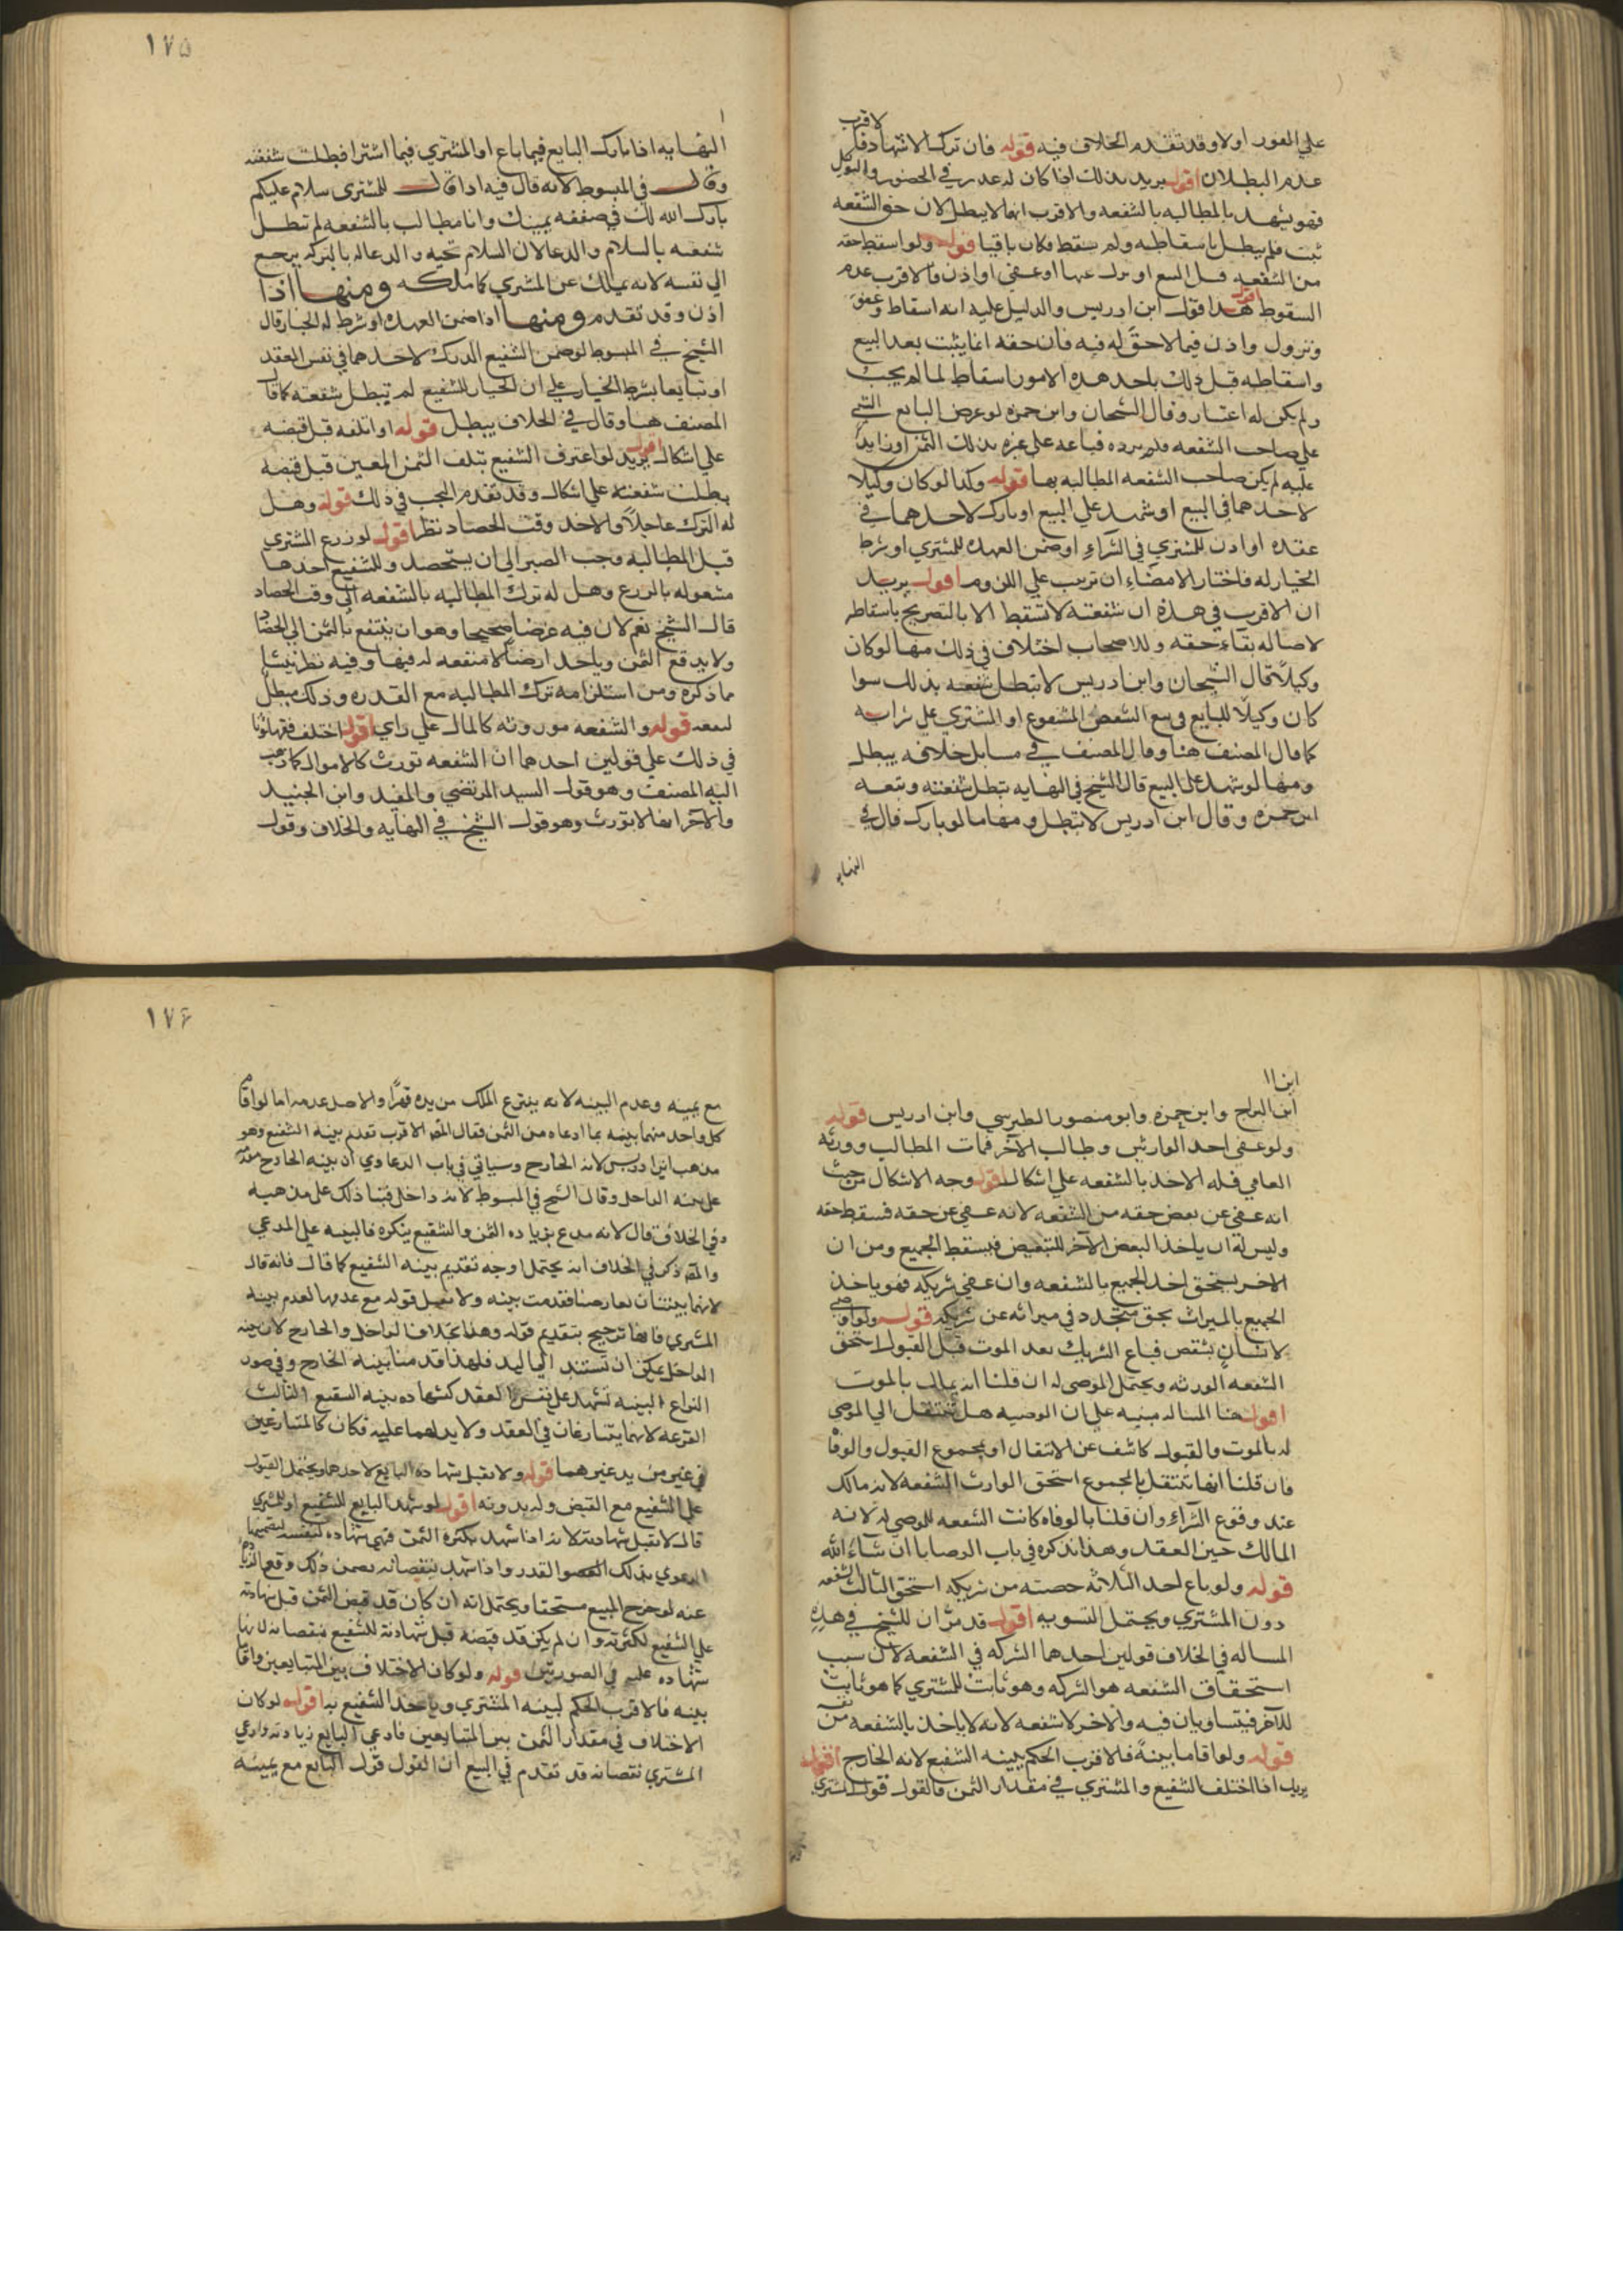 على الفور اولا وقد تقدم الخلاف فيه قوله فان ترك الاشهاد فالاقرب
عدم البطلان اقول يريد بذلك اذا كان له عذر في الحضور والتوكل
فهو يشهد بالمطالبه بالشفعه والاقرب انها لا يبطل لان حق الشفعه
ثبت فلم يبطل باسقاطه ولم يسقط فكان باقيا قوله ولو اسقط حقه
من الشفعه قبل البيع او نزل عنها او عفى او اذن فالاقرب عدم
السقوط اقول هذا قول ابن ادريس والدليل عليه انه اسقاط وعفو
ونزول واذن فيما لا حق له فيه فان حقه انما يثبت بعد البيع
واسقاطه قبل ذلك باحد هذه الامور اسقاط لما لم يجب
ولم يكن له اعتبار وقال الشيخان وابن حمزه لو عرض البايع الشي
على صاحب الشفعه فلم يرده فباعه على غيره بذلك الثمن او زايدا
عليه لم يكن صاحب الشفعه المطالبه بها قوله وكذا لو كان وكيلا
لاحدهما في البيع او شهد على البيع او بارك لاحدهما في
عقده او اذن للمشتري في الشراء او ضمن العهده للمشتري او شرط
الخيار له فاختار الامضاء ان ترتب على اللزوم اقول يريد
ان الاقرب في هذه ان شفعته لا تسقط الا بالتصريح باسقاط
لاصاله بقاء حقه وللاصحاب اختلاف في ذلك منها لو كان
وكيلا قال الشيخان وابن ادريس لا تبطل شفعه بذلك سوا
كان وكيلا للبايع في بيع الشقص المشفوع او المشتري على شرايه
كما قال المصنف هنا وقال المصنف في مسايل خلافه يبطل
ومنها لو شهد على البيع قال الشيخ في النهايه تبطل شفعته وتبعه
ابن حمزه وقال ابن ادريس لا تبطل ومنها ما لو بارك قال في
النهايه
١٧٥
النهايه اذا بارك البايع فيما باع او المشتري فيما اشترا فبطلت شفعته
وقال في المبسوط لانه قال فيه اذا قال للمشترى سلام عليكم
بارك الله لك في صفقه يمينك وانا مطالب بالشفعه لم تبطل
شفعه بالسلام والدعا لان السلام تحيه والدعا له بالبركه يرجع
الي نفسه لانه يملك عن المشتري كما ملكه ومنها اذا
اذن وقد تقدم ومنها اذا ضمن العهده او شرط له الخيار قال
الشيخ في المبسوط لو ضمن الشفيع الدرك لاحدهما في نفس العقد
او تبايعا بشرط الخيار على ان الخيار للشفيع لم تبطل شفعته كما قال
المصنف هنا وقال في الخلاف يبطل قوله او اتلفه قبل قبضه
على اشكال اقول يريد لو اعترف الشفيع بتلف الثمن المعين قبل قبضه
بطلت شفعته على اشكال وقد تقدم البحث في ذلك قوله وهل
له الترك عاجلا والاخذ وقت الحصاد نظر اقول لو زرع المشتري
قبل المطالبه وجب الصبر الى ان يستحصد وللشفيع اخذها
مشغوله بالزرع وهل له ترك المطالبه بالشفعه الى وقت الحصاد
قال الشيخ نعم لان فيه غرضا صحيحا وهو ان ينتفع بالثمن الى الحصاد
ولا يدفع الثمن وياخذ ارضا لا منفعه له فيها وفيه نظر ينشا
مما ذكره ومن استلزامه ترك المطالبه مع القدره وذلك مبطل
لشفعته قوله والشفعه موروثه كالمال على راي اقول اختلف فقهاؤنا
في ذلك على قولين احدهما ان الشفعه تورث كالاموال كما ذهب
اليه المصنف وهو قول السيد المرتضي والمفيد وابن الجنيد
والآخر انها لا تورث وهو قول الشيخ في النهايه والخلاف وقول
ابن البراج وابن حمزه وابو منصور الطبرسي وابن ادريس قوله
ولو عفى احد الوارثين وطالب الآخر فمات المطالب وورثه
العافي فله الاخذ بالشفعه على اشكال اقول وجه الاشكال من حيث
انه عفى عن بعض حقه من الشفعه لانه عفى عن حقه فسقط حقه
وليس له ان ياخذ البعض الآخر للتبعيض فيسقط الجميع ومن ان
الاخر يستحق اخذ الجميع بالشفعه وان عفى شريكه فهو ياخذ
الجميع بالميراث بحق متجدد في ميراثه عن شريكه قوله ولو اوصى
لانسان بشقص فباع الشريك بعد الموت قبل القبول استحق
الشفعه الورثه ويحتمل الموصى له ان قلنا انه يملك بالموت
اقول هنا المساله مبنيه على ان الوصيه هل تنتقل الي الموصى
له بالموت والقبول كاشف عن الانتقال او بمجموع القبول والوفا
فان قلنا انها تنتقل بالمجموع استحق الوارث الشفعه لانه مالك
عند وقوع الشراء وان قلنا بالوفاه كانت الشفعه للموصي له لانه
المالك حين العقد وهذا نذكره في باب الوصايا ان شاء الله
قوله ولو باع احد الثلاثه حصته من شريكه استحق الثالث الشفعه
دون المشتري ويحتمل التسويه اقول قد مر ان للشيخ في هذه
المساله في الخلاف قولين احدهما الشركه في الشفعه لان سبب
استحقاق الشفعه هو الشركه وهو ثابت للمشتري كما هو ثابت
للآخر فيتساويان فيه والاخر لا شفعه لانه لا ياخذ بالشفعه من نفسه
قوله ولو اقاما بينة فالاقرب الحكم ببينه الشفيع لانه الخارج اقول
يريد اذا اختلف الشفيع والمشتري في مقدار الثمن فالقول قول المشتري
١٧۶
مع يمينه وعدم البينه لانه ينتزع الملك من يده قهرا والاصل عدمه اما لو اقام
كل واحد منهما بينه بما ادعاه من الثمن فقال المص الاقرب تقدم بينه الشفيع وهو
مذهب ابن ادريس لانه الخارج وسياتي في باب الدعاوي ان بينه الخارج مقدمه
على بينه الداخل وقال الشيخ في المبسوط لانه داخل فبنا ذلك على مذهبه
وفي الخلاف قال لانه مدع بزياده الثمن والشفيع ينكره فالبينه على المدعي
والمص ذكر في الخلاف انه يحتمل اوجه تقديم بينه الشفيع كما قال فانه قال
لانهما بينتان تعارضتا فقدمت بينه ولا يقبل قوله مع عدمها لعدم بينه
المشتري فانها ترجيح بتقديم قوله وهذا بخلاف الداخل والخارج لان بينه
الداخل يمكن ان تستند الى اليد فلهذا قدمنا بينه الخارج وفي صوره
النزاع البينه تشهد على نفس العقد كشهاده بينه الشفيع الثالث
القرعه لانهما يتنازعان في العقد ولا يد لهما عليه فكان كالمتنازعين
في عين من يد غيرهما قوله ولا تقبل شهاده البايع لاحدهما ويحتمل القبول
على الشفيع مع القبض وله بدونه اقول لو شهد البايع للشفيع او المشتري
قال لا تقبل شهادته لانه اذا شهد بكثره الثمن فهي شهاده لنفسه
عنه لو خرج المبيع مستحقا ويحتمل انه ان كان قد قبض الثمن قبل شهادته
على الشفيع لكثرته وان لم يكن قد قبضه قبل شهادته للشفيع بنقصانه لانها
شهاده عليه في الصورتين قوله ولو كان الاختلاف بين المتبايعين واقاما
بينه فالاقرب الحكم لبينه المشتري وياخذ الشفيع به اقول لو كان
الاختلاف في مقدار الثمن بين المتبايعين فادعى البايع زيادته وادعى
المشتري نقصانه قد تقدم في البيع ان القول قول البايع مع يمينه